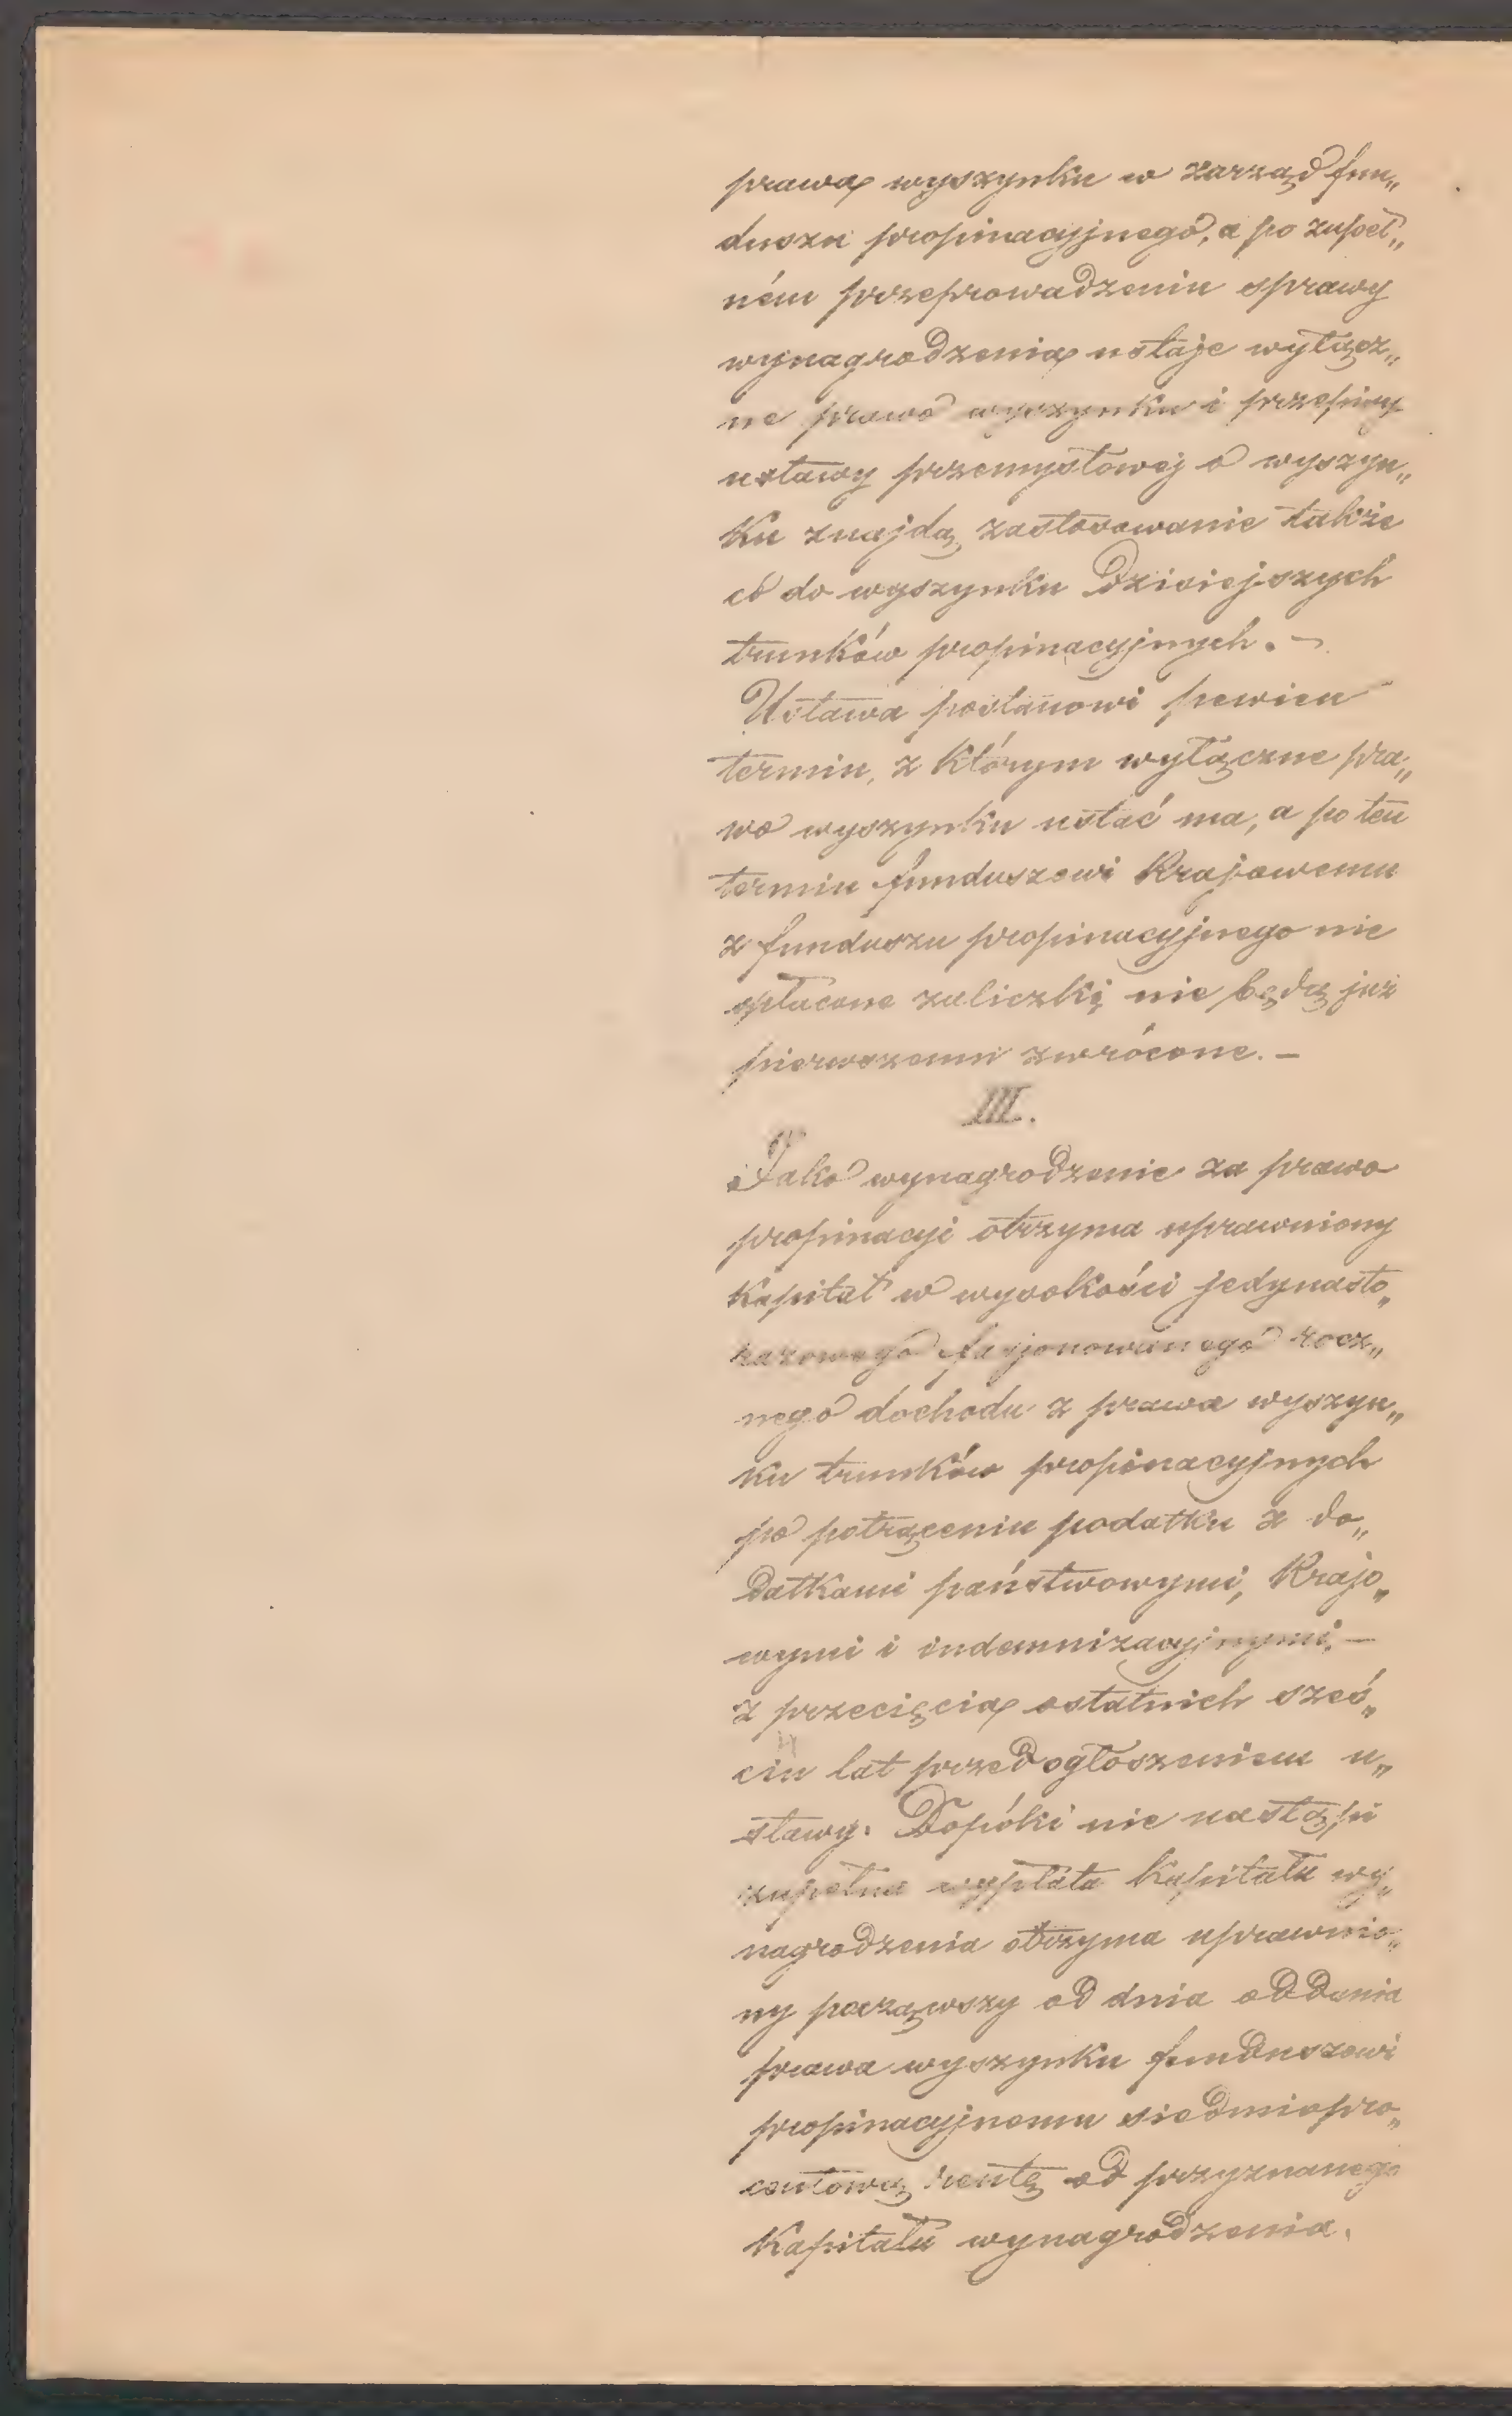 prawa wyszynku w zarząd fun„
duszu propinacyjnego, a po zupeł„
ném przeprowadzeniu sprawy
wynagrodzenia ustaje wyłącz„
ne prawo wyszynku i przepisy
ustawy przemysłowej o wyszyn„
ku znajdą zastosowanie także
co do wyszynku dzisiejszych
trunków propinacyjnych. –
Ustawa postanowi pewien
termin, z którym wyłączne pra„
wo wyszynku ustać ma, a po ten
termin funduszowi krajowemu
z funduszu propinacyjnego nie
spłacone zaliczki nie będą już
pierwszemu zwrócone. –
III.
Jako wynagrodzenie za prawo
propinacyi otrzyma uprawniony
kapitał w wysokości jedynasto„
razowego fasjonowanego rocz„
nego dochodu z prawa wyszyn„
ku trunków propinacyjnych
po potrąceniu podatku z do„
datkami państwowymi, krajo„
wymi i indemnizacyjnymi, –
z przecięcia ostatnich sześ„
ciu lat przed ogłoszeniem u„
stawy. Dopóki nie nastąpi
zupełna wypłata kapitału wy„
nagrodzenia otrzyma uprawnio„
ny począwszy od dnia oddania
prawa wyszynku funduszowi
propinacyjnemu siedmiopro„
centową rentę od przyznanego
kapitału wynagrodzenia.